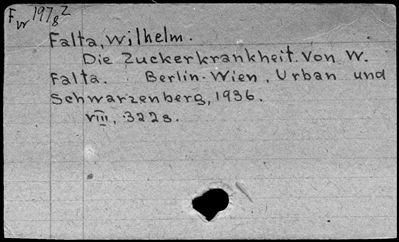 Fw 1978 2
Falta, Wilhelm.
Die Zuckerkrankheit. Von W.
Falta. Berlin-Wien, Urban und
Schwarzenberg, 1936.
VIII, 322s.